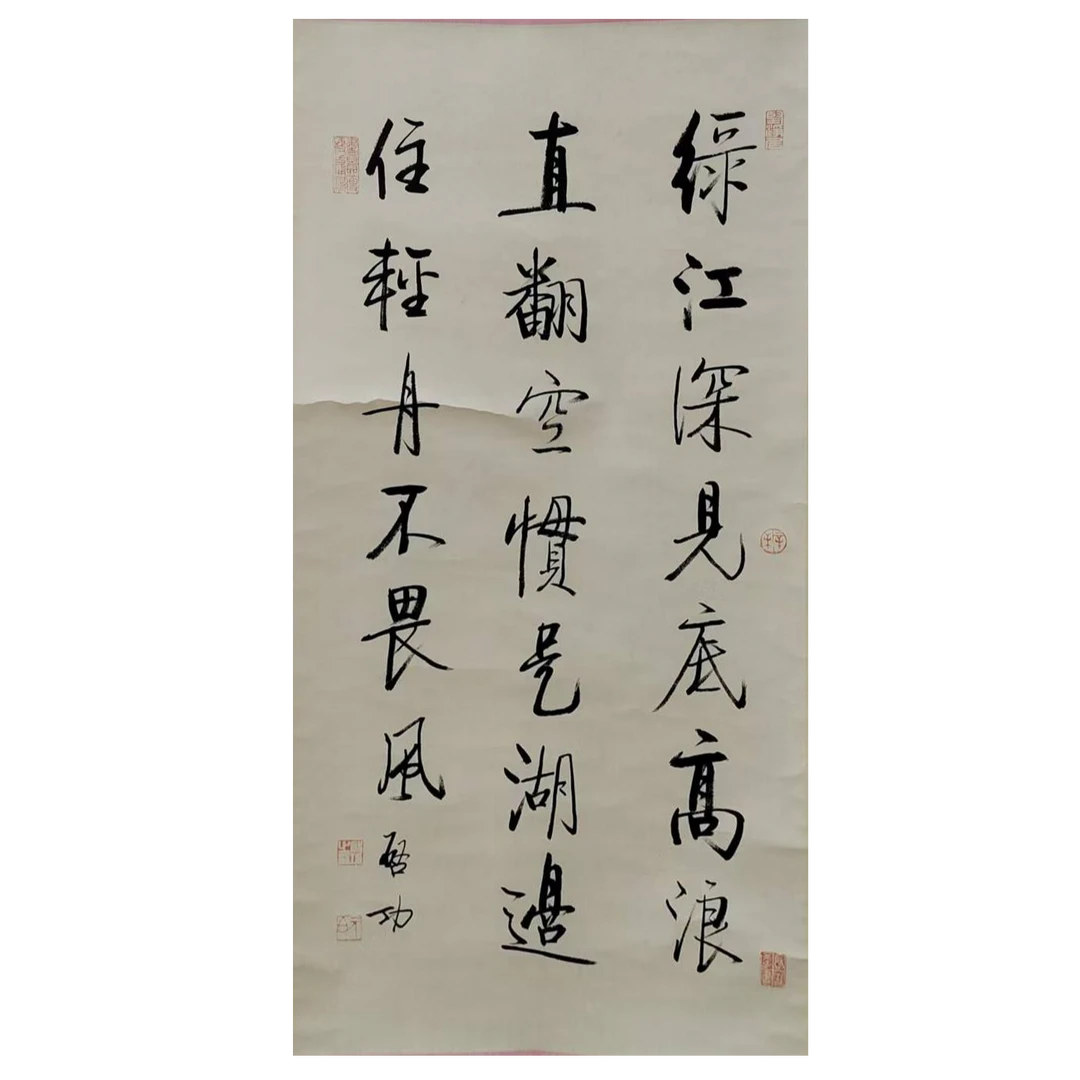 緑江深見底高浪
直翻空慣是湖邊
住輕舟不畏風 啓功